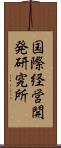 国際経営開発研究所